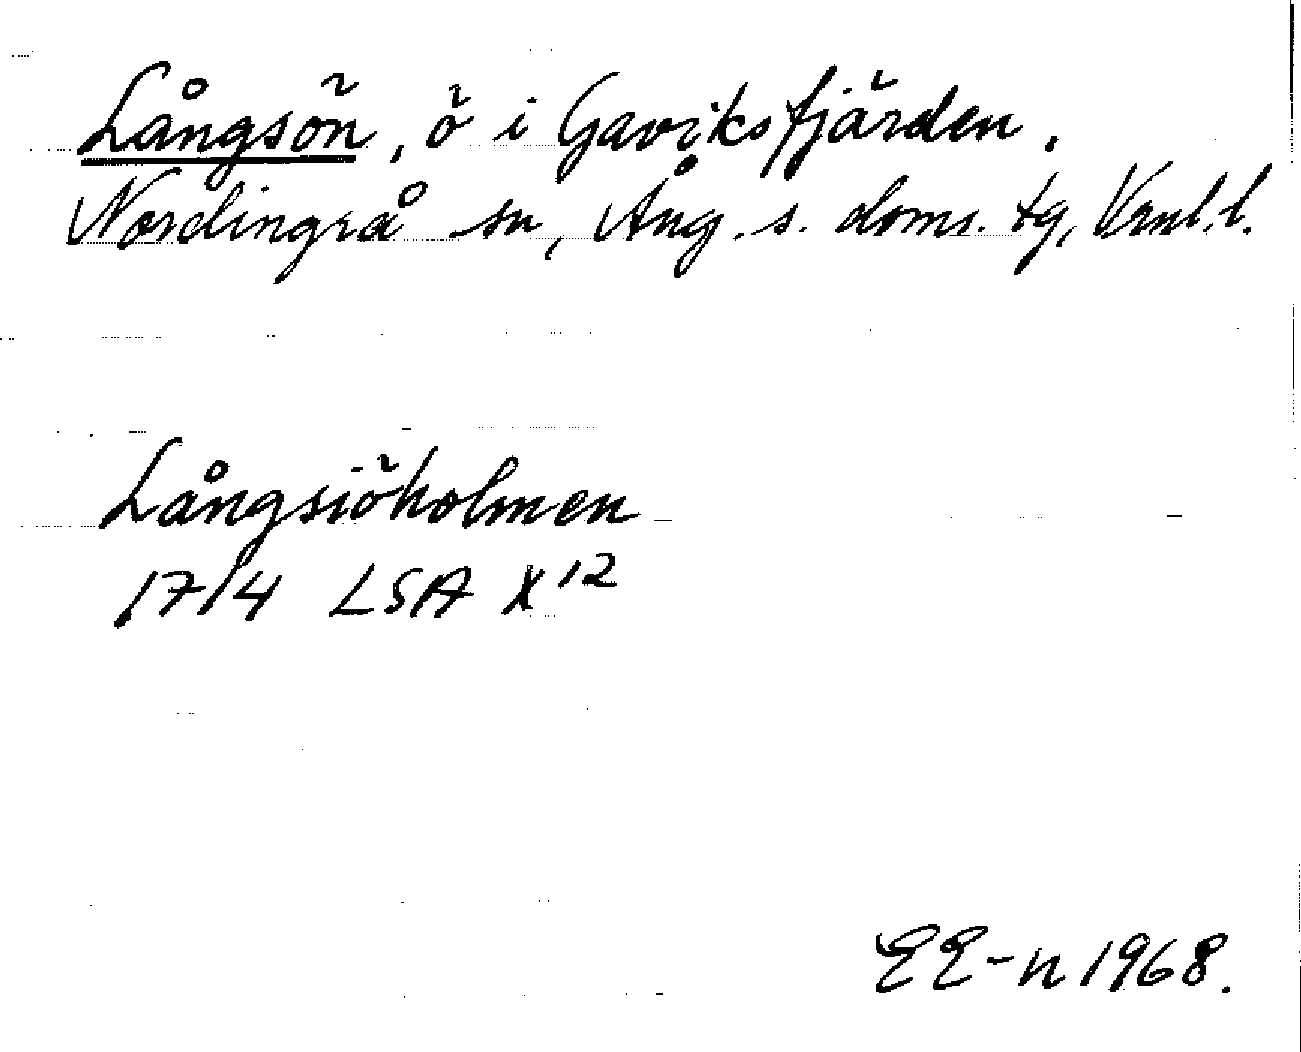 Långsön, ö i Gaviksfjärden.
Nordingrå sn, Ång. s. doms. tg, Vrnl. l.
Långsiöholmen
1714 LSA X 12
EE-n 1968.